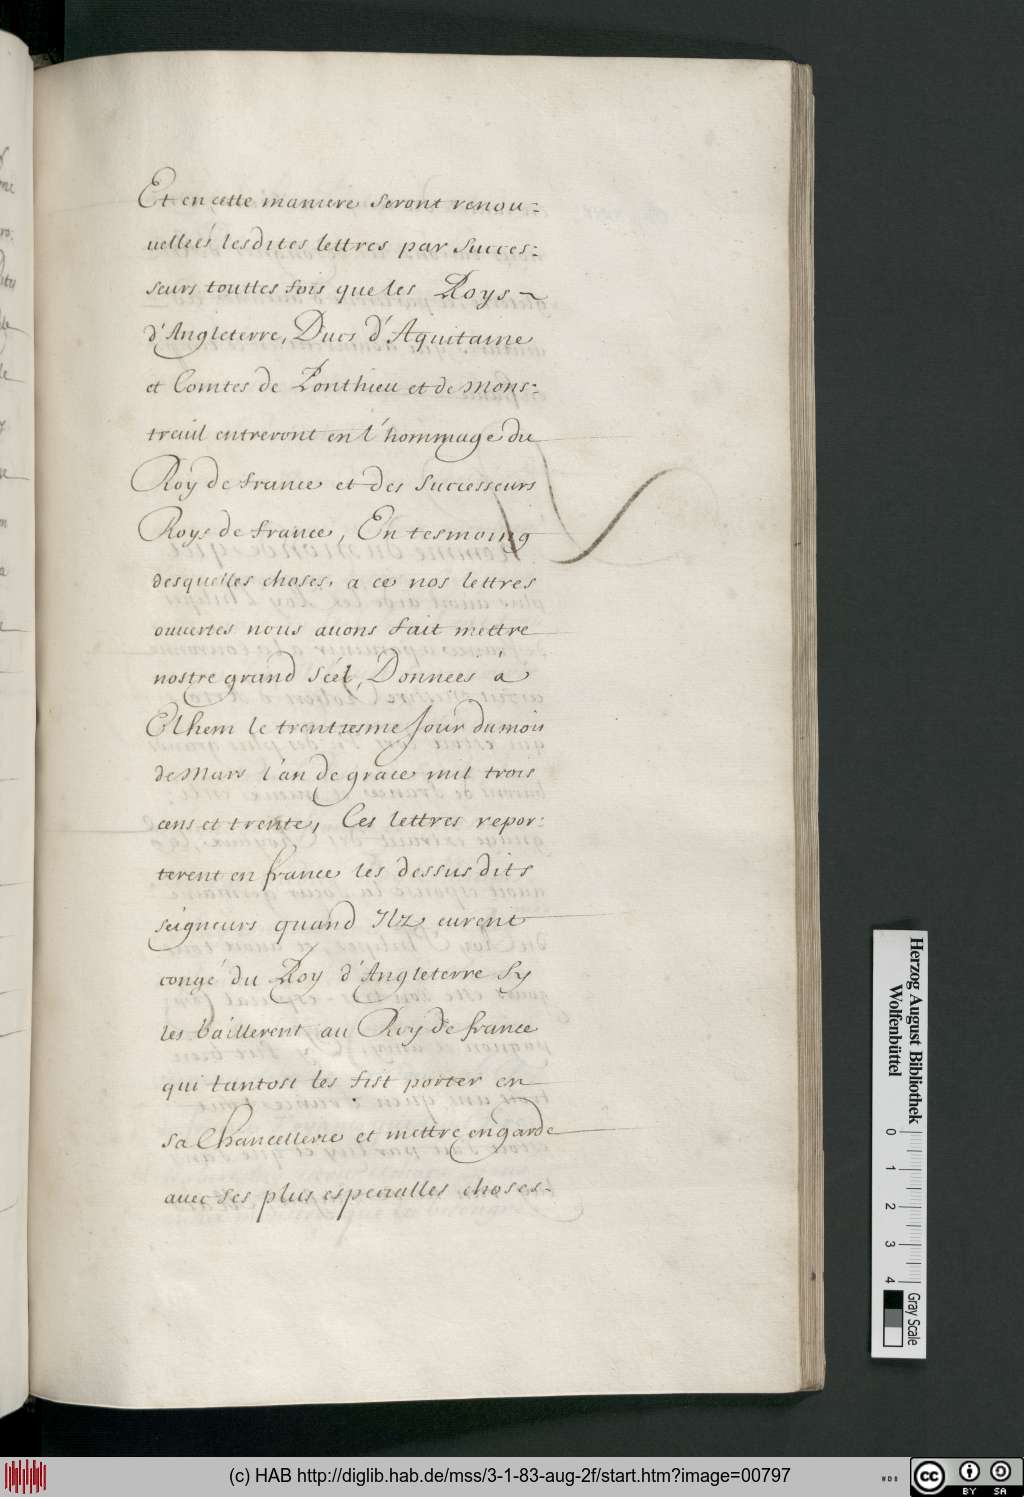 Et en cette maniere seront renou-
uelleés lesdites lettres par succes-
seurs touttes fois que les Roys
d'Angleterre, Ducs d'Aquitaine
et Comtes de Ponthieu et de Mons-
treuil entreront en l'hommage du
Roy de france et des successeurs
Roys de france, En tesmoing
desquelles choses, a ce nos lettres
ouuertes nous auons fait mettre
nostre grand scél, Donneés à
Elhem le trentiesme Jour du mois
de Mars l'an de grace mil trois
cens et trente, Ces lettres repor-
terent en france les dessus dits
seigneurs quand Ilz eurent
congé du Roy d'Angleterre sy
les baillerent au Roy de france
qui tantost les fist porter en
sa Chancellerie et mettre en garde
auec ses plus especialles choses-
Herzog August Bibliothek
Wolfenbüttel
0 1 2 3 4
Gray Scale
(c) HAB http://diglib.hab.de/mss/3-1-83-aug-2f/start.htm?image=00797
WDB
cc BY SA